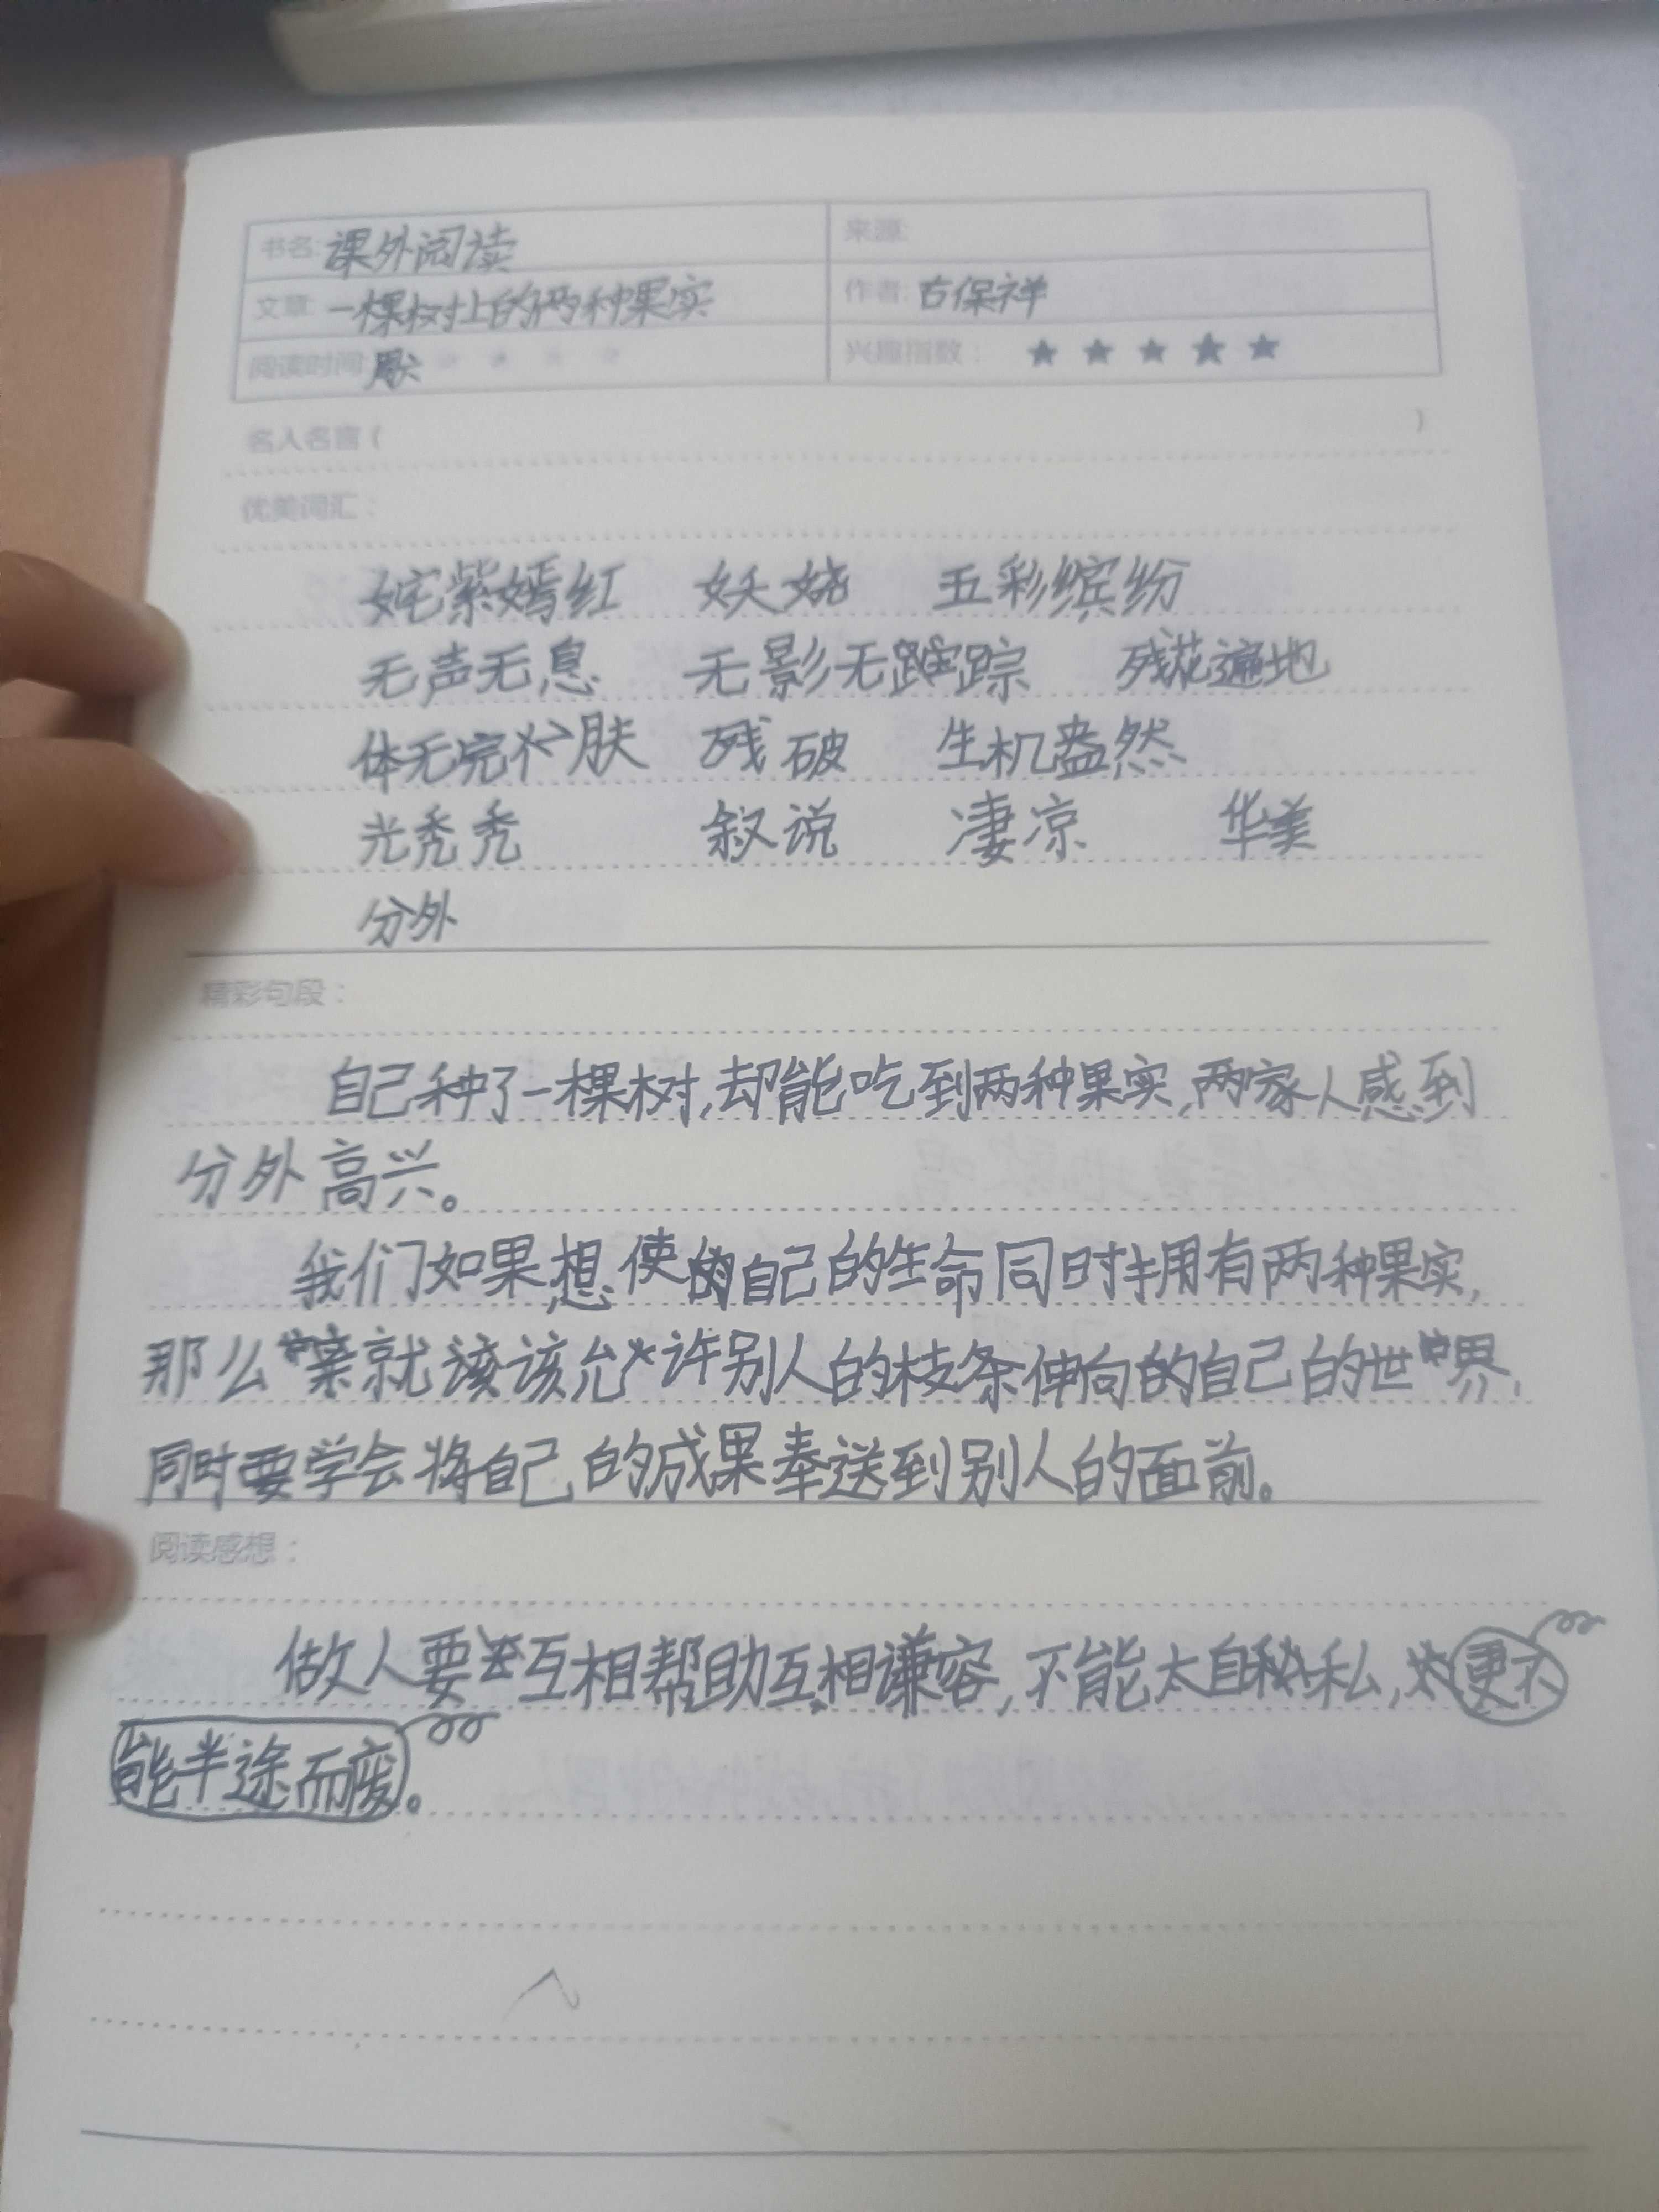 书名: 课外阅读 来源:
文章: 一棵树上的两种果实 作者: 古保祥
阅读时间: 周六 兴趣指数： ★ ★ ★ ★ ★
名人名言（ ）
优美词汇：
姹紫嫣红 妖娆 五彩缤纷
无声无息 无影无踪 残花遍地
体无完肤 残破 生机盎然
光秃秃 叙说 凄凉 华美
分外
精彩句段：
自己种了一棵树,却能吃到两种果实,两家人感到
分外高兴。
我们如果想使自己的生命同时拥有两种果实,
那么就该允许别人的枝条伸向的自己的世界,
同时要学会将自己的成果奉送到别人的面前。
阅读感想：
做人要互相帮助互相谦容,不能太自私,更不
能半途而废。